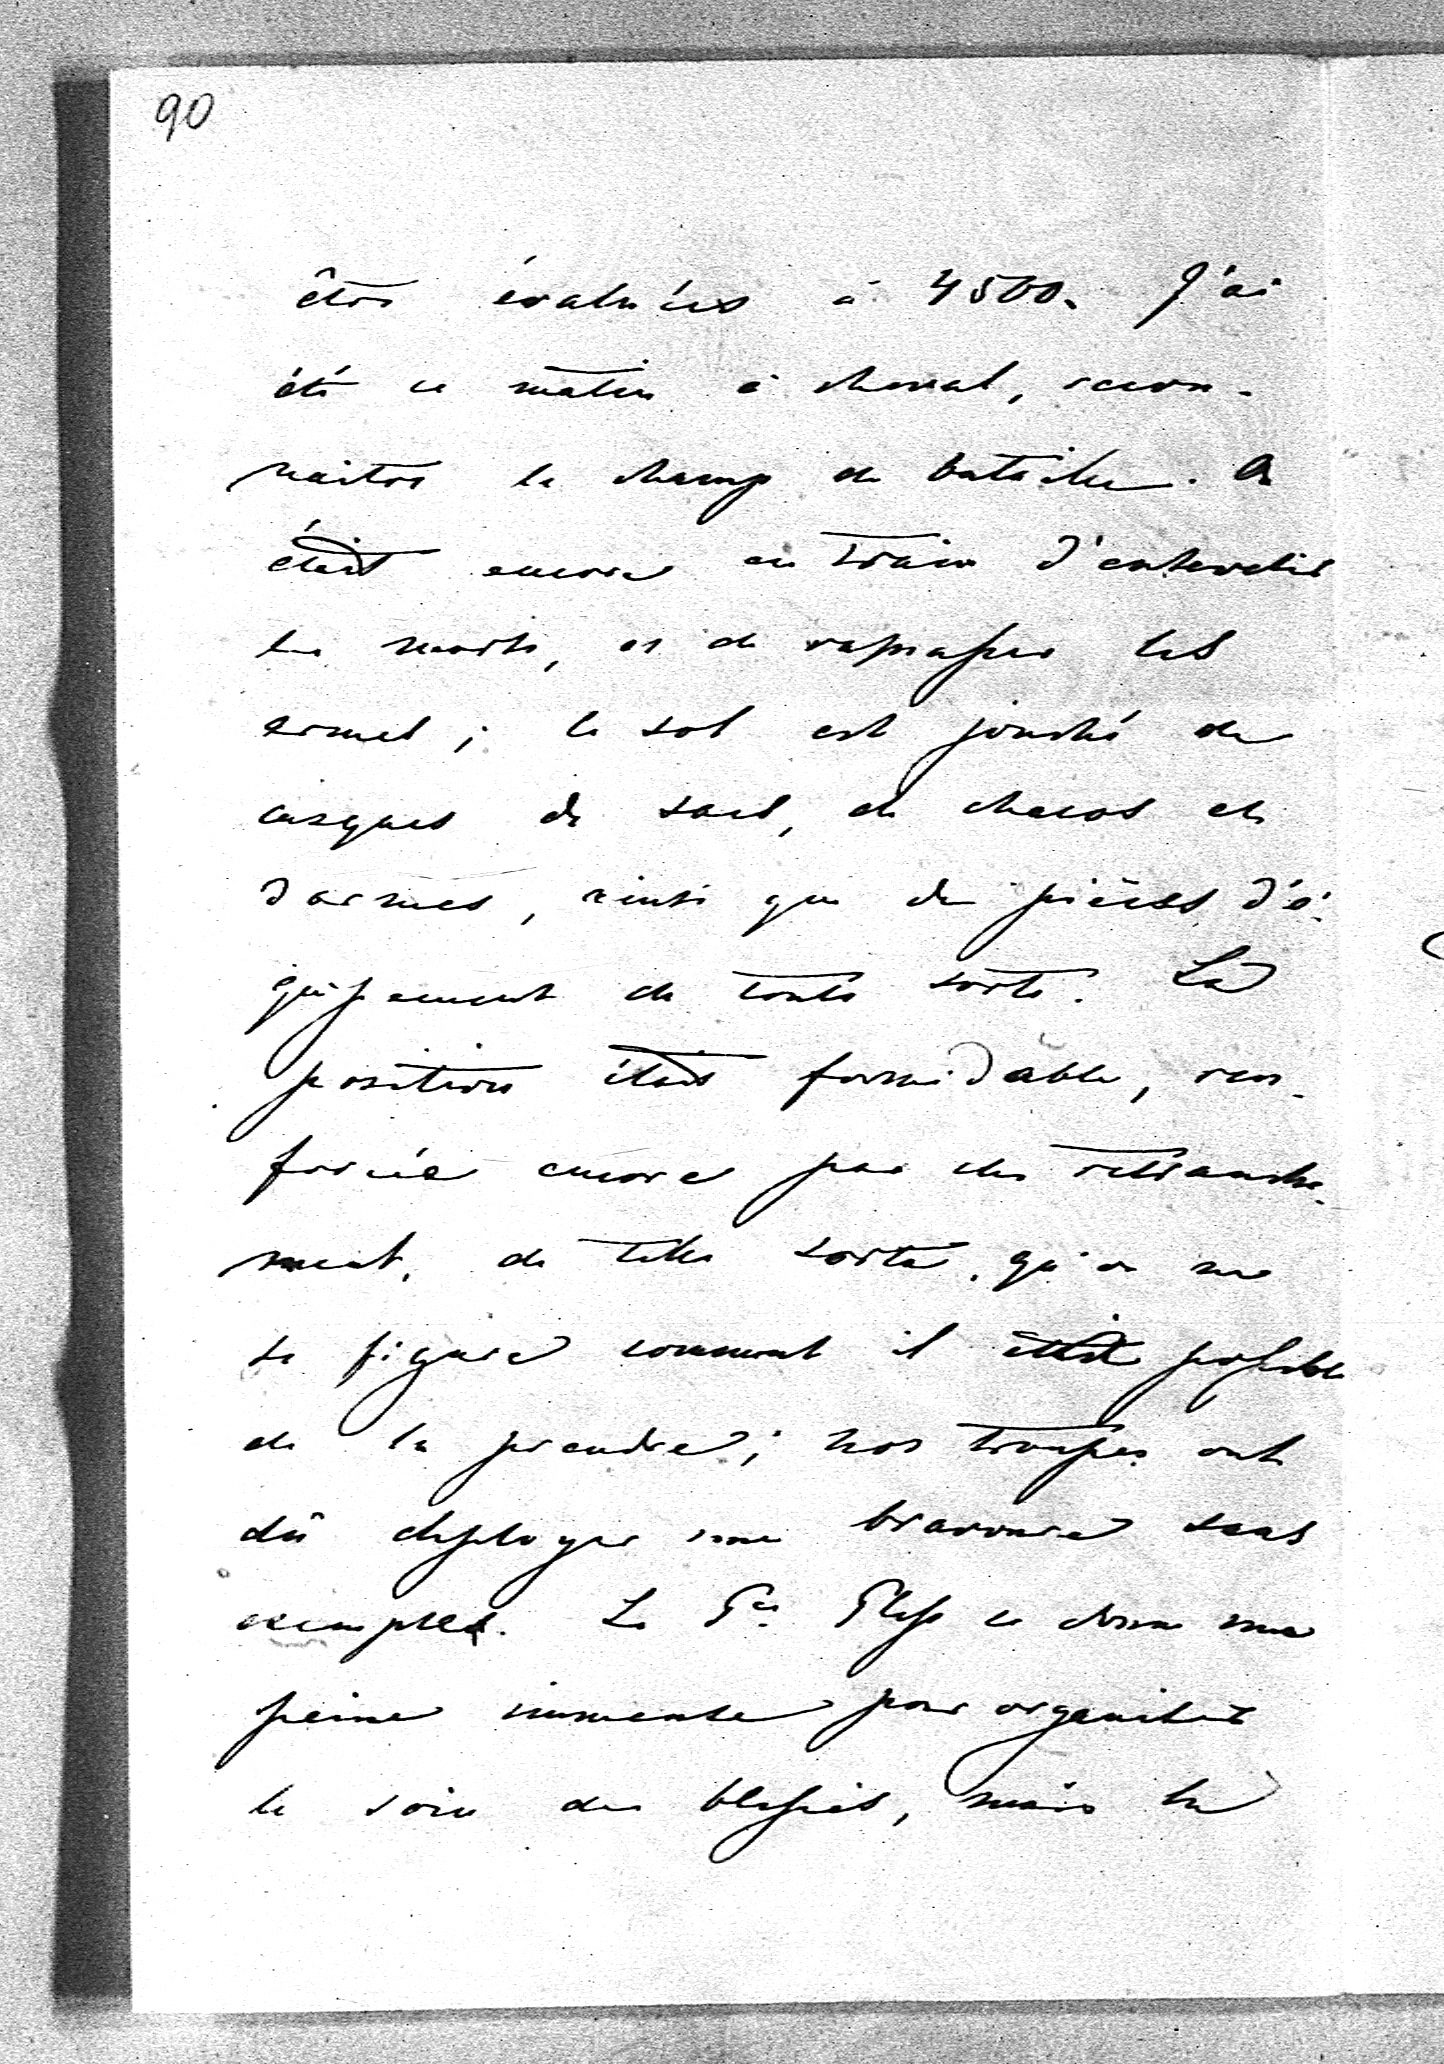 90
être évaluées à 4500. J'ai
été ce matin à cheval, recon-
naitre le champ de bataille. On
était encore en train d'ensevelir
les morts, et de ramasser les
armes; le sol est jonché de
casques de sacs, de chacos et
d'armes, ainsi que de pièces d'é-
quipement de toute sorte. La
position était formidable, ren-
forcée encore par des retranche-
ment, de telle sorte, qu'on ne
se figure comment il était possible
de la prendre; nos troupes ont
dû deployer une bravoure sans
exemples. Le Pce se donne une
peine immense pour organiser
le soin des blessés, mais le